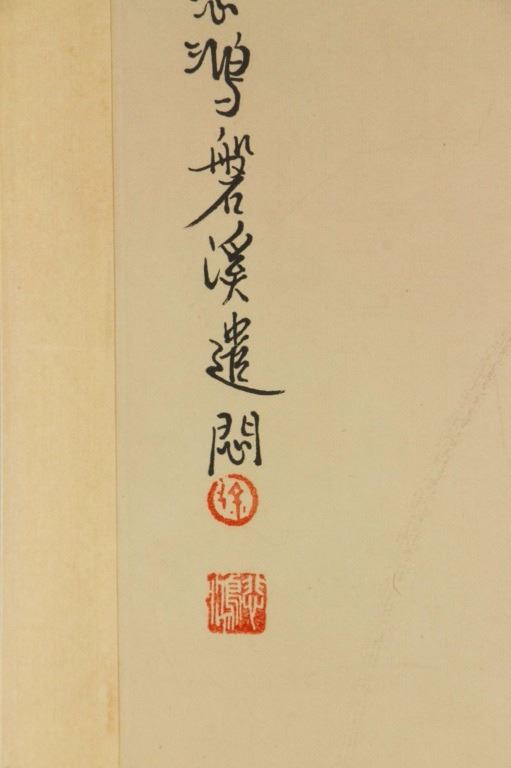 悲鴻磐溪遣悶
徐
悲鴻